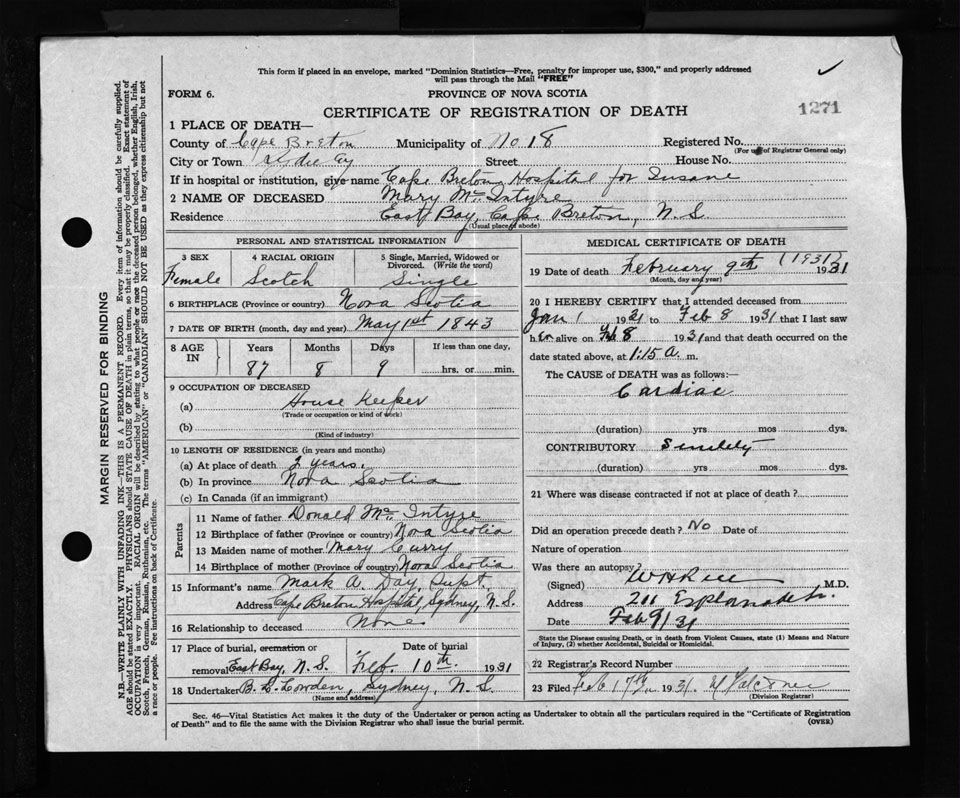 This form if placed in an envelope, marked "Dominion Statistics—Free, penalty for improper use, $300," and properly addressed
will pass through the Mail "FREE"
FORM 6.
PROVINCE OF NOVA SCOTIA
CERTIFICATE OF REGISTRATION OF DEATH
1271
1 PLACE OF DEATH—
County of Cape Breton Municipality of No 18 Registered No.
(For use of Registrar General only)
City or Town Street House No.
If in hospital or institution, give name Cape Breton Hospital for Insane
2 NAME OF DECEASED Mary Mc Intyre
Residence East Bay, Cape Breton, N.S.
(Usual place of abode)
PERSONAL AND STATISTICAL INFORMATION
3 SEX 4 RACIAL ORIGIN 5 Single, Married, Widowed or
Divorced. (Write the word)
Female Scotch Single
6 BIRTHPLACE (Province or country) Nova Scotia
7 DATE OF BIRTH (month, day and year) May 1st 1843
8 AGE IN Years Months Days If less than one day,
87 8 9 hrs. or min.
9 OCCUPATION OF DECEASED
(a) House Keeper
(Trade or occupation or kind of work)
(b)
(Kind of industry)
10 LENGTH OF RESIDENCE (in years and months)
(a) At place of death 2 years.
(b) In province Nova Scotia
(c) In Canada (if an immigrant)
Parents
11 Name of father Donald Mc Intyre
12 Birthplace of father (Province or country) Nova Scotia
13 Maiden name of mother Mary Curry
14 Birthplace of mother (Province or country) Nova Scotia
15 Informant's name Mark A. Day, Supt.
Address Cape Breton Hospital, Sydney, N.S.
16 Relationship to deceased None
17 Place of burial, cremation or Date of burial
removal East Bay, N.S. Feb. 10th 1931
18 Undertaker B. L. Cowden, Sydney, N.S.
(Name and address)
MEDICAL CERTIFICATE OF DEATH
19 Date of death February 9th (1931) 1931
(Month, day and year)
20 I HEREBY CERTIFY that I attended deceased from
Jan 1 1931 to Feb 8 1931 that I last saw
her alive on Feb 8 1931 and that death occurred on the
date stated above, at 1:15 a. m.
The CAUSE OF DEATH was as follows:—
Cardiac
(duration) yrs mos dys.
CONTRIBUTORY Senility
(duration) yrs mos dys.
21 Where was disease contracted if not at place of death?
Did an operation precede death? No Date of
Nature of operation
Was there an autopsy
(Signed) M.D.
Address 211 Esplanade
Date Feb 9/31
State the Disease causing Death, or in death from Violent Causes, state (1) Means and Nature
of Injury, (2) whether Accidental, Suicidal or Homicidal.
22 Registrar's Record Number
23 Filed Feb 17th 1931.
(Division Registrar)
Sec. 46—Vital Statistics Act makes it the duty of the Undertaker or person acting as Undertaker to obtain all the particulars required in the "Certificate of Registration
of Death" and to file the same with the Division Registrar who shall issue the burial permit.
(OVER)
MARGIN RESERVED FOR BINDING
N.B.—WRITE PLAINLY WITH UNFADING INK—THIS IS A PERMANENT RECORD. Every item of information should be carefully supplied.
AGE should be stated EXACTLY. PHYSICIANS should STATE CAUSE OF DEATH in plain terms, so that it may be properly classified. Exact statement of
OCCUPATION is very important. RACIAL ORIGIN will be described by stating to what people or race the deceased person belonged, whether English, Irish,
Scotch, French, German, Russian, Ruthenian, etc. The terms "AMERICAN" or "CANADIAN" SHOULD NOT BE USED as they express citizenship but not
a race or people. See instructions on back of Certificate.